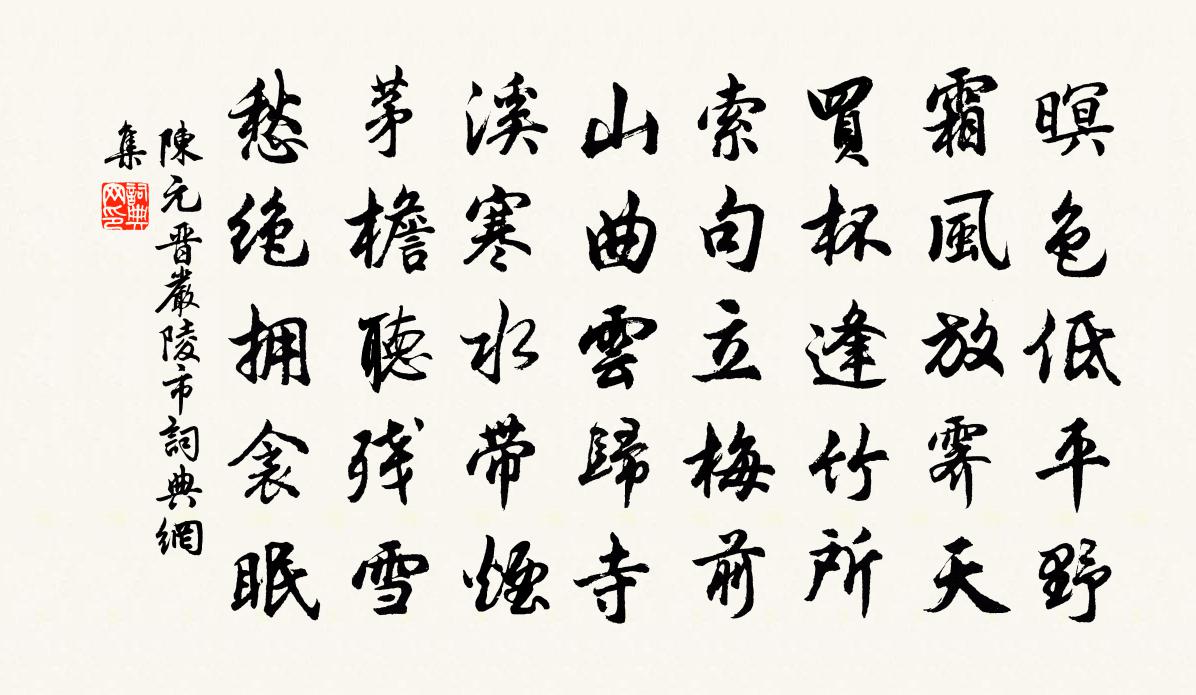 暝色低平野
霜風放霽天
買杯逢竹所
索句立梅前
山曲雲歸寺
溪寒水帶煙
茅檐聽殘雪
愁絶拥衾眠
陳元晋嚴陵市詞典網
集
詞典网印